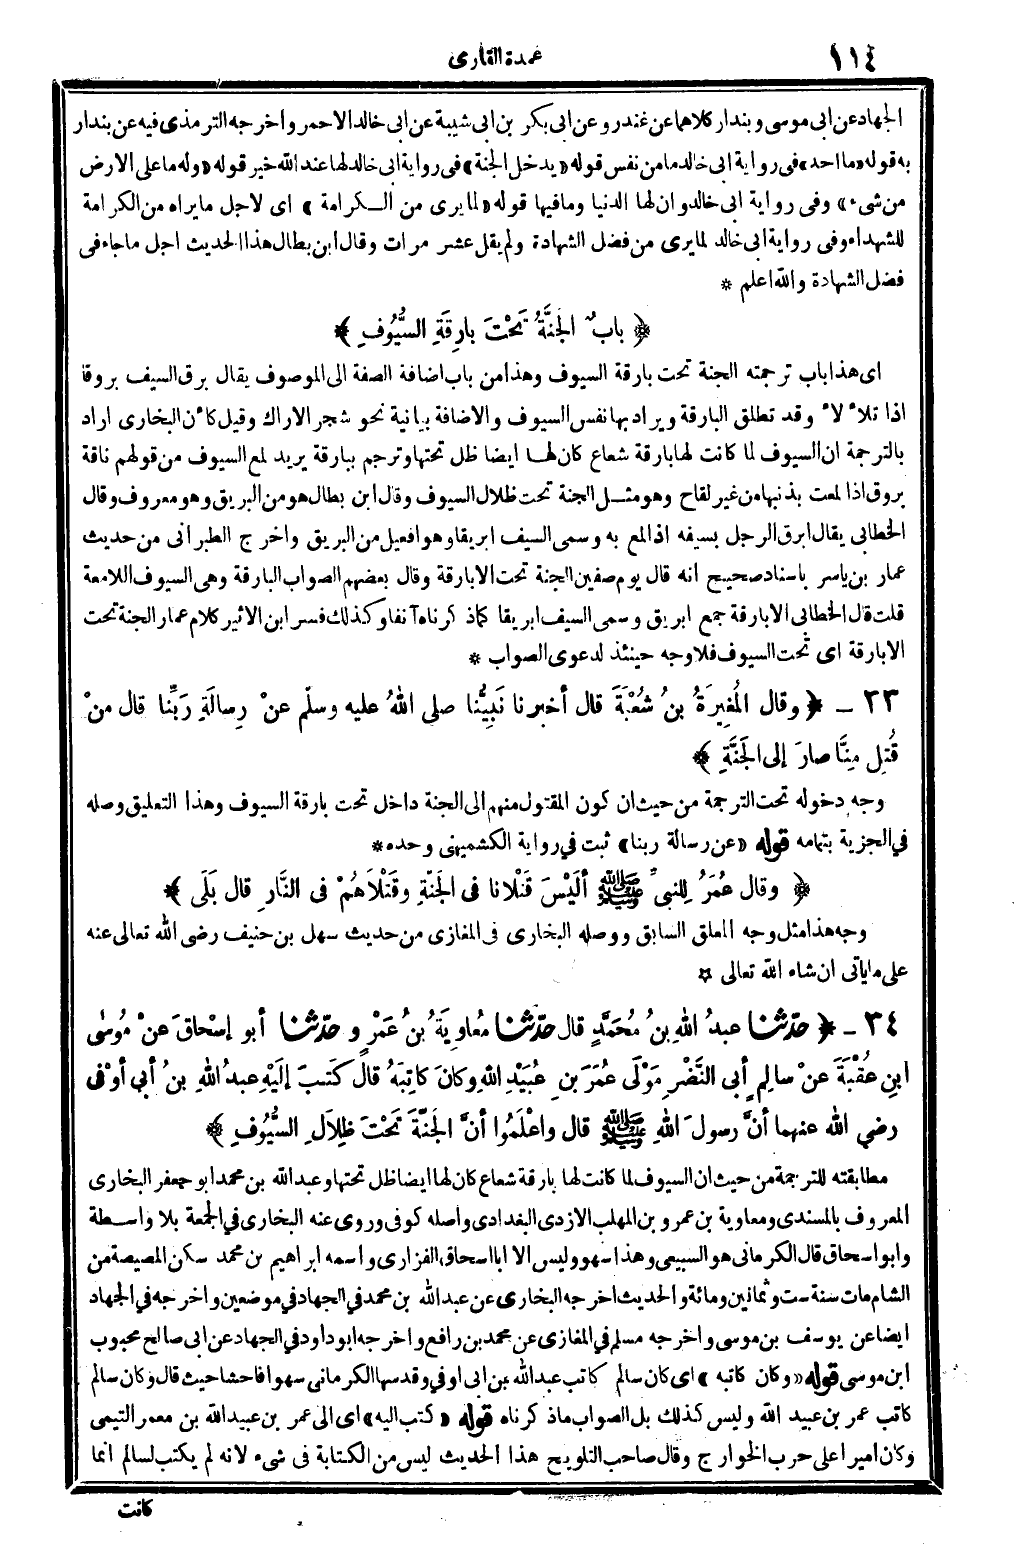 ١١٤
عمدة القارى
الجهاد عن ابى موسى وبندار كلاهما عن غندر وعن ابى بكر بن ابى شيبة عن ابى خالد الاحمر واخرجه الترمذى فيه عن بندار
به قوله «ما احد» فى رواية ابى خالد ما من نفس قوله «يدخل الجنة» فى رواية ابى خالد لها عند الله خير قوله «وله ما على الارض
من شىء» وفى رواية ابى خالد وان لها الدنيا وما فيها قوله «لما يرى من الكرامة» اى لاجل ما يراه من الكرامة
للشهداء وفى رواية ابى خالد لما يرى من فضل الشهادة ولم يقل عشر مرات وقال ابن بطال هذا الحديث اجل ما جاء فى
فضل الشهادة والله اعلم *
﴿ بابٌ الجَنَّةُ تَحْتَ بارِقَةِ السُّيُوفِ ﴾
اى هذا باب ترجمته الجنة تحت بارقة السيوف وهذا من باب اضافة الصفة الى الموصوف يقال برق السيف بروقا
اذا تلاٴلاٴ وقد تطلق البارقة ويراد بها نفس السيوف والاضافة بيانية نحو شجر الاراك وقيل كأن البخارى اراد
بالترجمة ان السيوف لما كانت لها بارقة شعاع كان لها ايضا ظل تحتها وترجم ببارقة يريد لمع السيوف من قولهم ناقة
بروق اذا لمعت بذنبها من غير لقاح وهو مثل الجنة تحت ظلال السيوف وقال ابن بطال هو من البريق وهو معروف وقال
الخطابى يقال ابرق الرجل بسيفه اذا لمع به وسمى السيف ابريقا وهو افعيل من البريق واخرج الطبرانى من حديث
عمار بن ياسر باسناد صحيح انه قال يوم صفين الجنة تحت الابارقة وقال بعضهم الصواب البارقة وهى السيوف اللامعة
قلت قال الخطابى الابارقة جمع ابريق وسمى السيف ابريقا كماذ كرناه آنفا وكذلك فسر ابن الاثير كلام عمار الجنة تحت
الابارقة اى تحت السيوف فلا وجه حينئذ لدعوى الصواب *
٣٣ ـ ﴿ وقال المُغِيرَةُ بنُ شُعْبَةَ قال أخبرنا نَبِيُّنا صلى اللهُ عليه وسلّم عنْ رِسالَةِ رَبِّنا قال منْ
قُتِل مِنَّا صارَ إلى الجَنَّةِ ﴾
وجه دخوله تحت الترجمة من حيث ان كون المقتول منهم الى الجنة داخل تحت بارقة السيوف وهذا التعليق وصله
في الجزية بتمامه قوله «عن رسالة ربنا» ثبت في رواية الكشميهنى وحده *
﴿ وقال عُمَرُ لِلنبيِّ ﷺ ألَيْسَ قَتْلانا فى الجَنّةِ وقَتْلاَهُمْ فى النَّارِ قال بَلَى ﴾
وجه هذا مثل وجه المعلق السابق ووصله البخارى فى المغازى من حديث سهل بن حنيف رضى الله تعالى عنه
على ما ياتى ان شاء الله تعالى *
٣٤ ـ ﴿ حدّثنا عبدُ اللهِ بنُ مُحَمَّدٍ قال حدّثنا مُعاوِيَةُ بنُ عَمْرٍو حدّثنا أبو إسْحاقَ عنْ مُوسَى
ابنِ عُقْبَةَ عنْ سالِمٍ أبي النَّضْرِ مَوْلَى عُمَرَ بنِ عُبَيْدِ اللهِ وكانَ كاتِبَهُ قالَ كَتَبَ إلَيْهِ عبدُ اللهِ بنُ أبي أوْفَى
رضي الله عنهما أنَّ رسولَ اللهِ ﷺ قال واعْلَمُوا أنَّ الجَنَّةَ تَحْتَ ظِلاَلِ السُّيُوفِ ﴾
مطابقته للترجمة من حيث ان السيوف لما كانت لها بارقة شعاع كان لها ايضا ظل تحتها وعبد الله بن محمد ابو جعفر البخارى
المعروف بالمسندى ومعاوية بن عمرو بن المهلب الازدى البغدادى واصله كوفى وروى عنه البخارى في الجمعة بلا واسطة
وابو اسحاق قال الكرمانى هو السبيعى وهذا سهو وليس الا ابا اسحاق الفزارى واسمه ابراهيم بن محمد سكن المصيصة من
الشام مات سنة ست وثمانين ومائة والحديث اخرجه البخارى عن عبد الله بن محمد في الجهاد في موضعين واخرجه في الجهاد
ايضا عن يوسف بن موسى واخرجه مسلم في المغازى عن محمد بن رافع واخرجه ابو داود في الجهاد عن ابى صالح محبوب
ابن موسى قوله «وكان كاتبه» اى كان سالم كاتب عبد الله بن ابى اوفي وقد سها الكرمانى سهوا فاحشا حيث قال وكان سالم
كاتب عمر بن عبيد الله وليس كذلك بل الصواب ماذ كرناه قوله «كتب اليه» اى الى عمر بن عبيد الله بن معمر التيمى
وكان اميرا على حرب الخوارج وقال صاحب التلويح هذا الحديث ليس من الكتابة فى شىء لانه لم يكتب لسالم انما
كانت